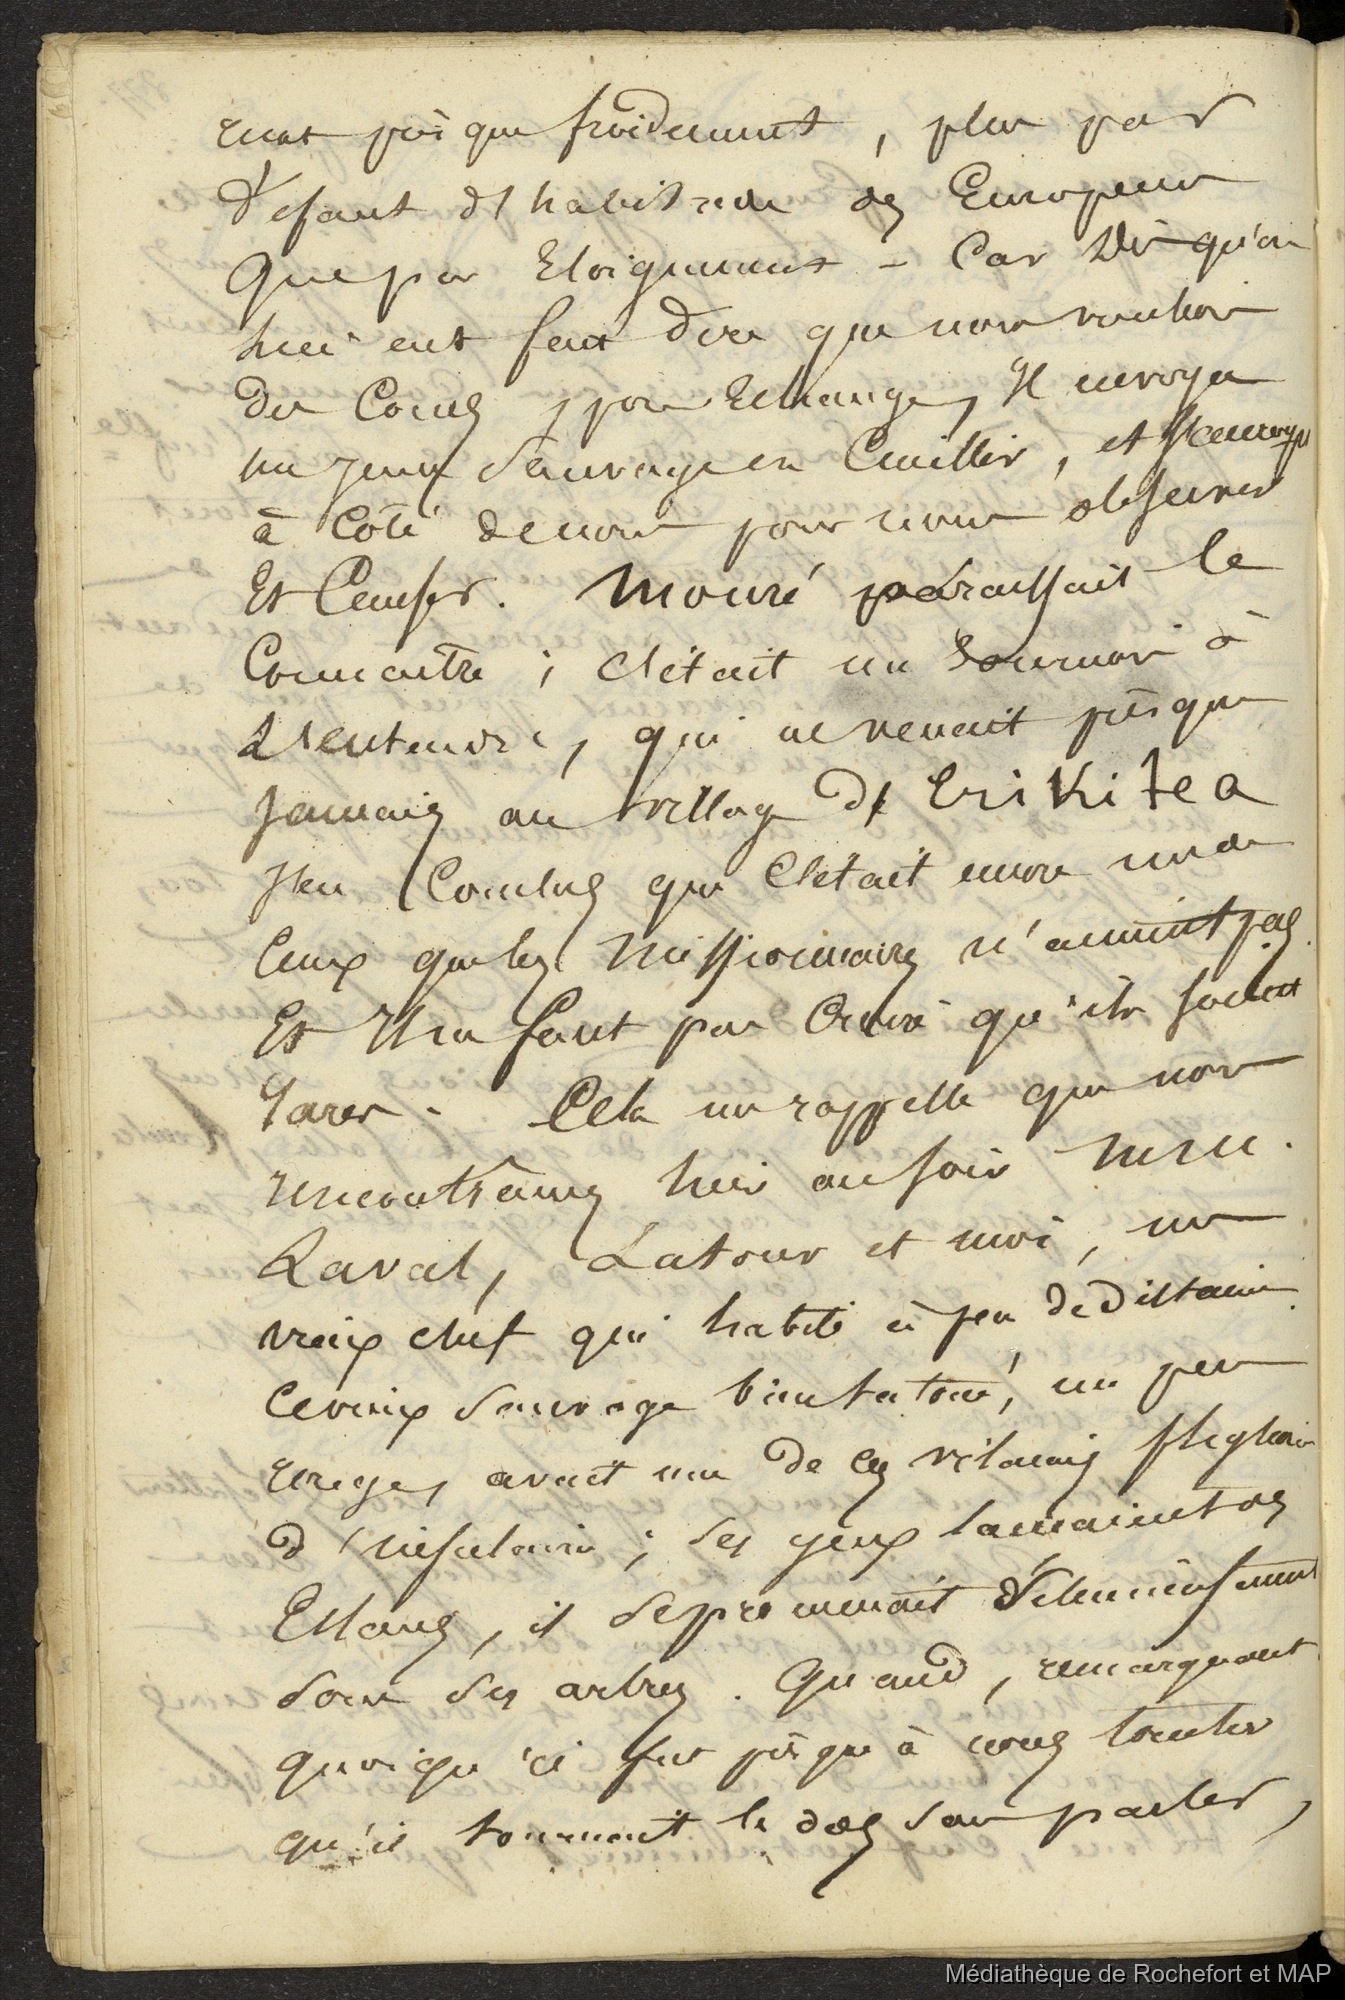 presque froidement, plus par
défaut d'habitude des Européens
que par Eloignement - Car dès qu'on
lui eut fait dire que nous voulions
des Cocos, pour Echange, Il envoya
un jeune Sauvage en Cueillir, et
à Côté de nous pour nous observer
Et Causer. Mouré paraissait le
Connaitre ; C'était un Sournois à
L'entendre, qui ne venait presque
Jamais au village de Erikitea
J'en Conclus que C'était encore un de
Ceux que les Missionnaires n'aiment pas
Et Il ne faut pas Croire qu'ils soient
rares. Cela me rappelle que nous
rencontrâmes hier au soir MM.
Laval, Latour et moi, un
vieux chef qui habite à peu de distance.
Ce vieux Sauvage bien tatoué, un peu
avait un de ces vilains
d'insulaire ; ses yeux
Eclairs, il se promenait Silencieusement
sous ses arbres. Quand, remarquant
quoiqu'il fut presque à nous toucher
qu'il tournait le dos sans parler,
Médiathèque de Rochefort et MAP